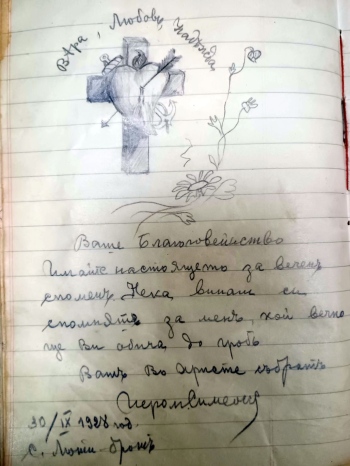 Вѣра, Любовь, Надежда
Ваше Благоговейнство
Имайте настоящето за веченъ
споменъ. Нека винаги си
спомнятъ за менъ, кой вечно
ще Ви обича до гробъ
Вашъ Во Христе събратъ
Иером Симеонъ
30/IX 1928 год.
с. Люти-бродъ